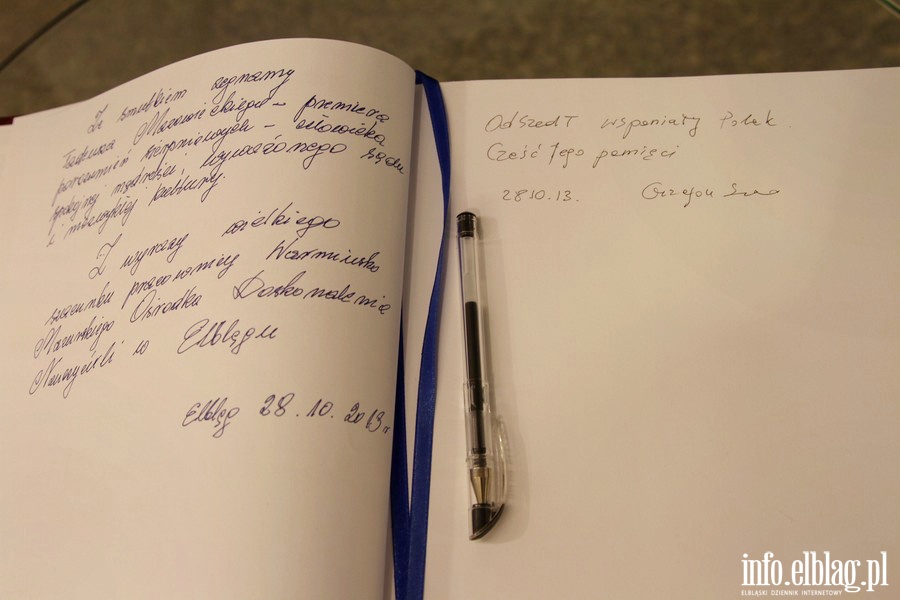 Ze smutkiem żegnamy
Tadeusza Mazowieckiego – premiera
porozumień sierpniowych – człowieka
spokojnej mądrości, wyważonego sądu
i niezwykłej kultury.
Z wyrazy wielkiego
szacunku pracownicy Warmińsko
Mazurskiego Ośrodka Doskonalenia
Nauczycieli w Elblągu
Elbląg 28.10.2013r
Odszedł wspaniały Polak
Cześć Jego pamięci
28.10.13.
info.elblag.pl
ELBLĄSKI DZIENNIK INTERNETOWY